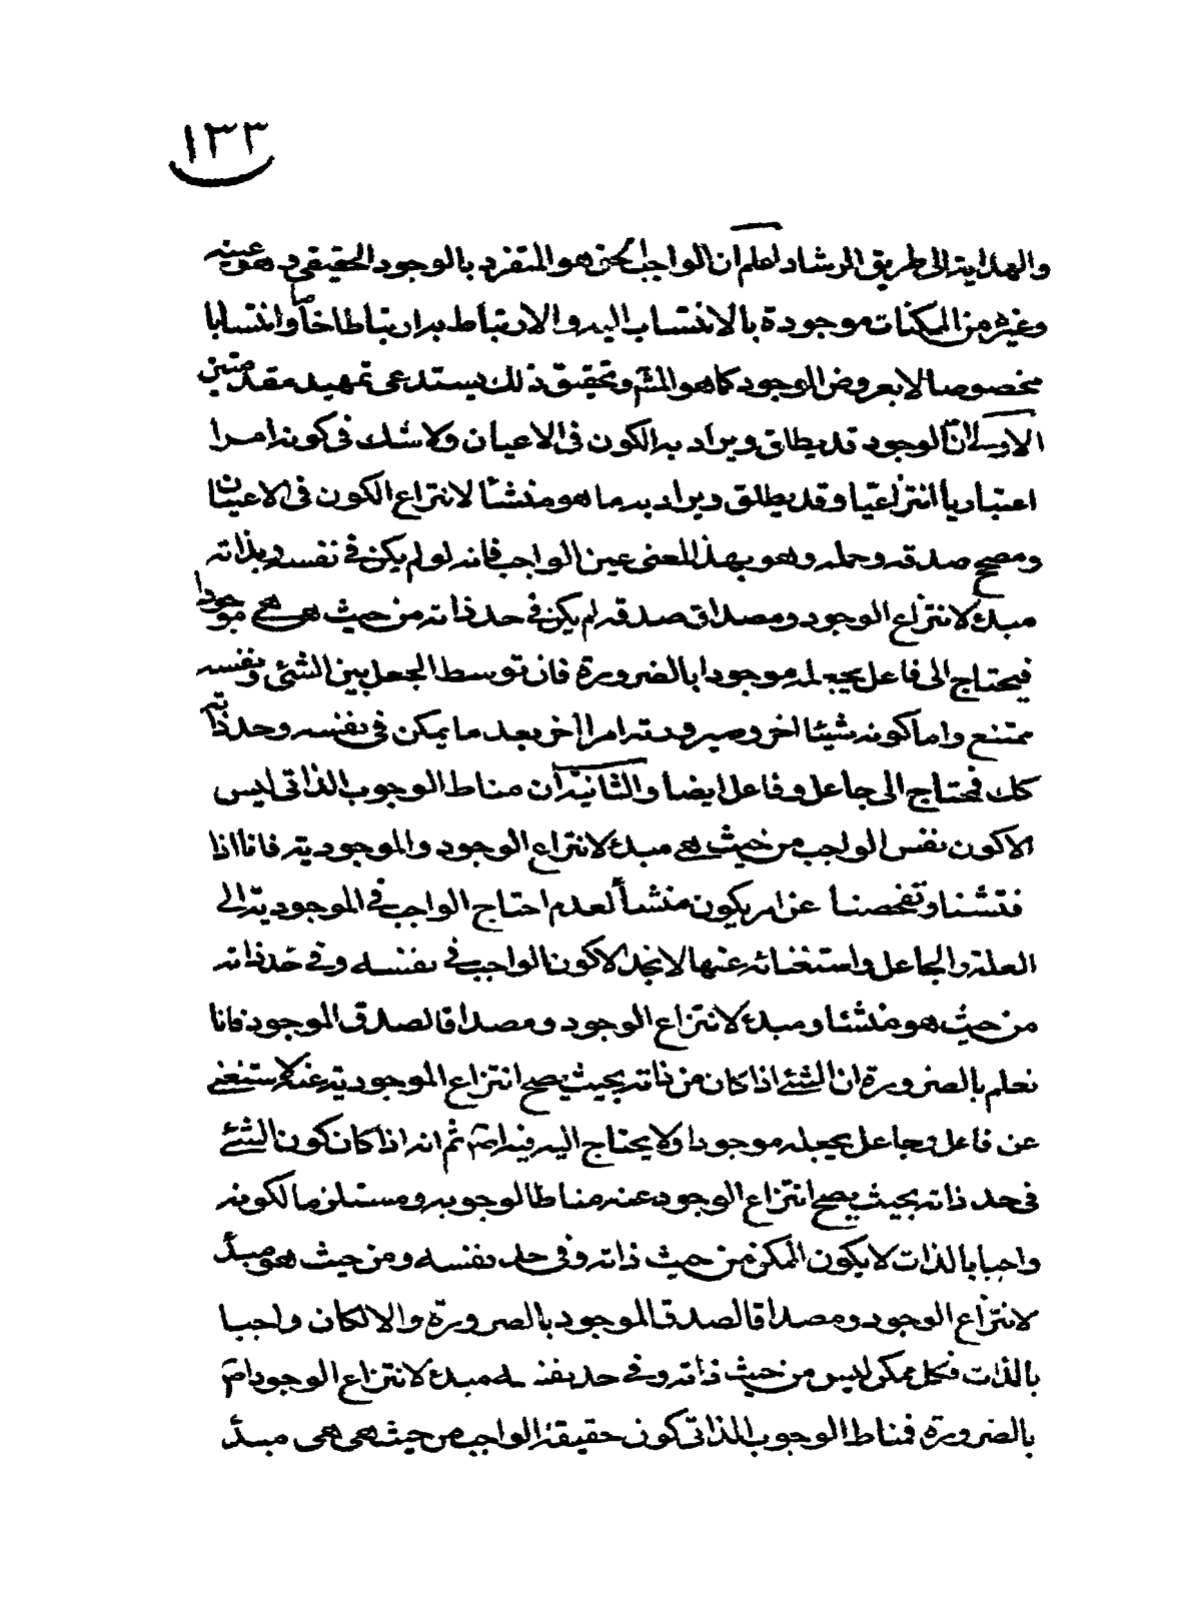 ١٣٣
والهداية الى طريق الرشاد اعلم ان الواجب الحق هو المتفرد بالوجود الحقيقى وهو عينه
وغيره من الممكنات موجودة بالانتساب اليه والارتباط به ارتباطا خاصا وانتسابا
مخصوصا لا بعروض الوجود كما هو المشم وتحقيق ذلك يستدعى تمهيد مقدمتين
الاولى ان الوجود قد يطلق ويراد به الكون فى الاعيان ولا شك فى كونه امرا
اعتباريا انتزاعيا وقد يطلق ويراد به ما هو منشئا لانتزاع الكون فى الاعيان
ومصحح صدقه وحمله وهو بهذا المعنى عين الواجب فانه لو لم يكن فى نفسه وبذاته
مبدء لانتزاع الوجود ومصداق صدقه لم يكن فى حد ذاته من حيث هى هى موجودا
فيحتاج الى فاعل يجعله موجودا بالضرورة فان توسط الجعل بين الشئ ونفسه
ممتنع واما كونه شيئا اخر وصيرورته امرا اخر بعد ما يمكن فى نفسه وحد ذاته
كك فيحتاج الى جاعل وفاعل ايضا والثانية ان مناط الوجوب الذاتى ليس
الا كون نفس الواجب من حيث هى مبدء لانتزاع الوجود والموجودية فانا اذا
فتشنا وتفحصنا عن امر يكون منشأ لعدم احتاج الواجب فى الموجودية الى
العلة والجاعل واستغنائه عنها لا نجد الا كون الواجب فى نفسه وفى حد ذاته
من حيث هو منشئا ومبدء لانتزاع الوجود ومصداقا لصدق الموجود فانا
نعلم بالضرورة ان الشئ اذا كان من ذاته بحيث يصح انتزاع الموجودية عنه لاستغنى
عن فاعل وجاعل يجعله موجودا ولا يحتاج اليه فيه اصم ثم انه اذا كان كون الشئ
فى حد ذاته بحيث يصح انتزاع الوجود عنه مناطا لوجوبه ومستلزما لكونه
واجبا بالذات لا يكون الممكن من حيث ذاته وفى حد نفسه ومن حيث هو مبدأ
لانتزاع الوجود ومصداقا لصدق الموجود بالضرورة والا لكان واجبا
بالذات فكل ممكن ليس من حيث ذاته وفى حد نفسه مبدء لانتزاع الوجود اصم
بالضرورة فمناط الوجوب الذاتى كون حقيقة الواجب من حيث هى هى مبدأ